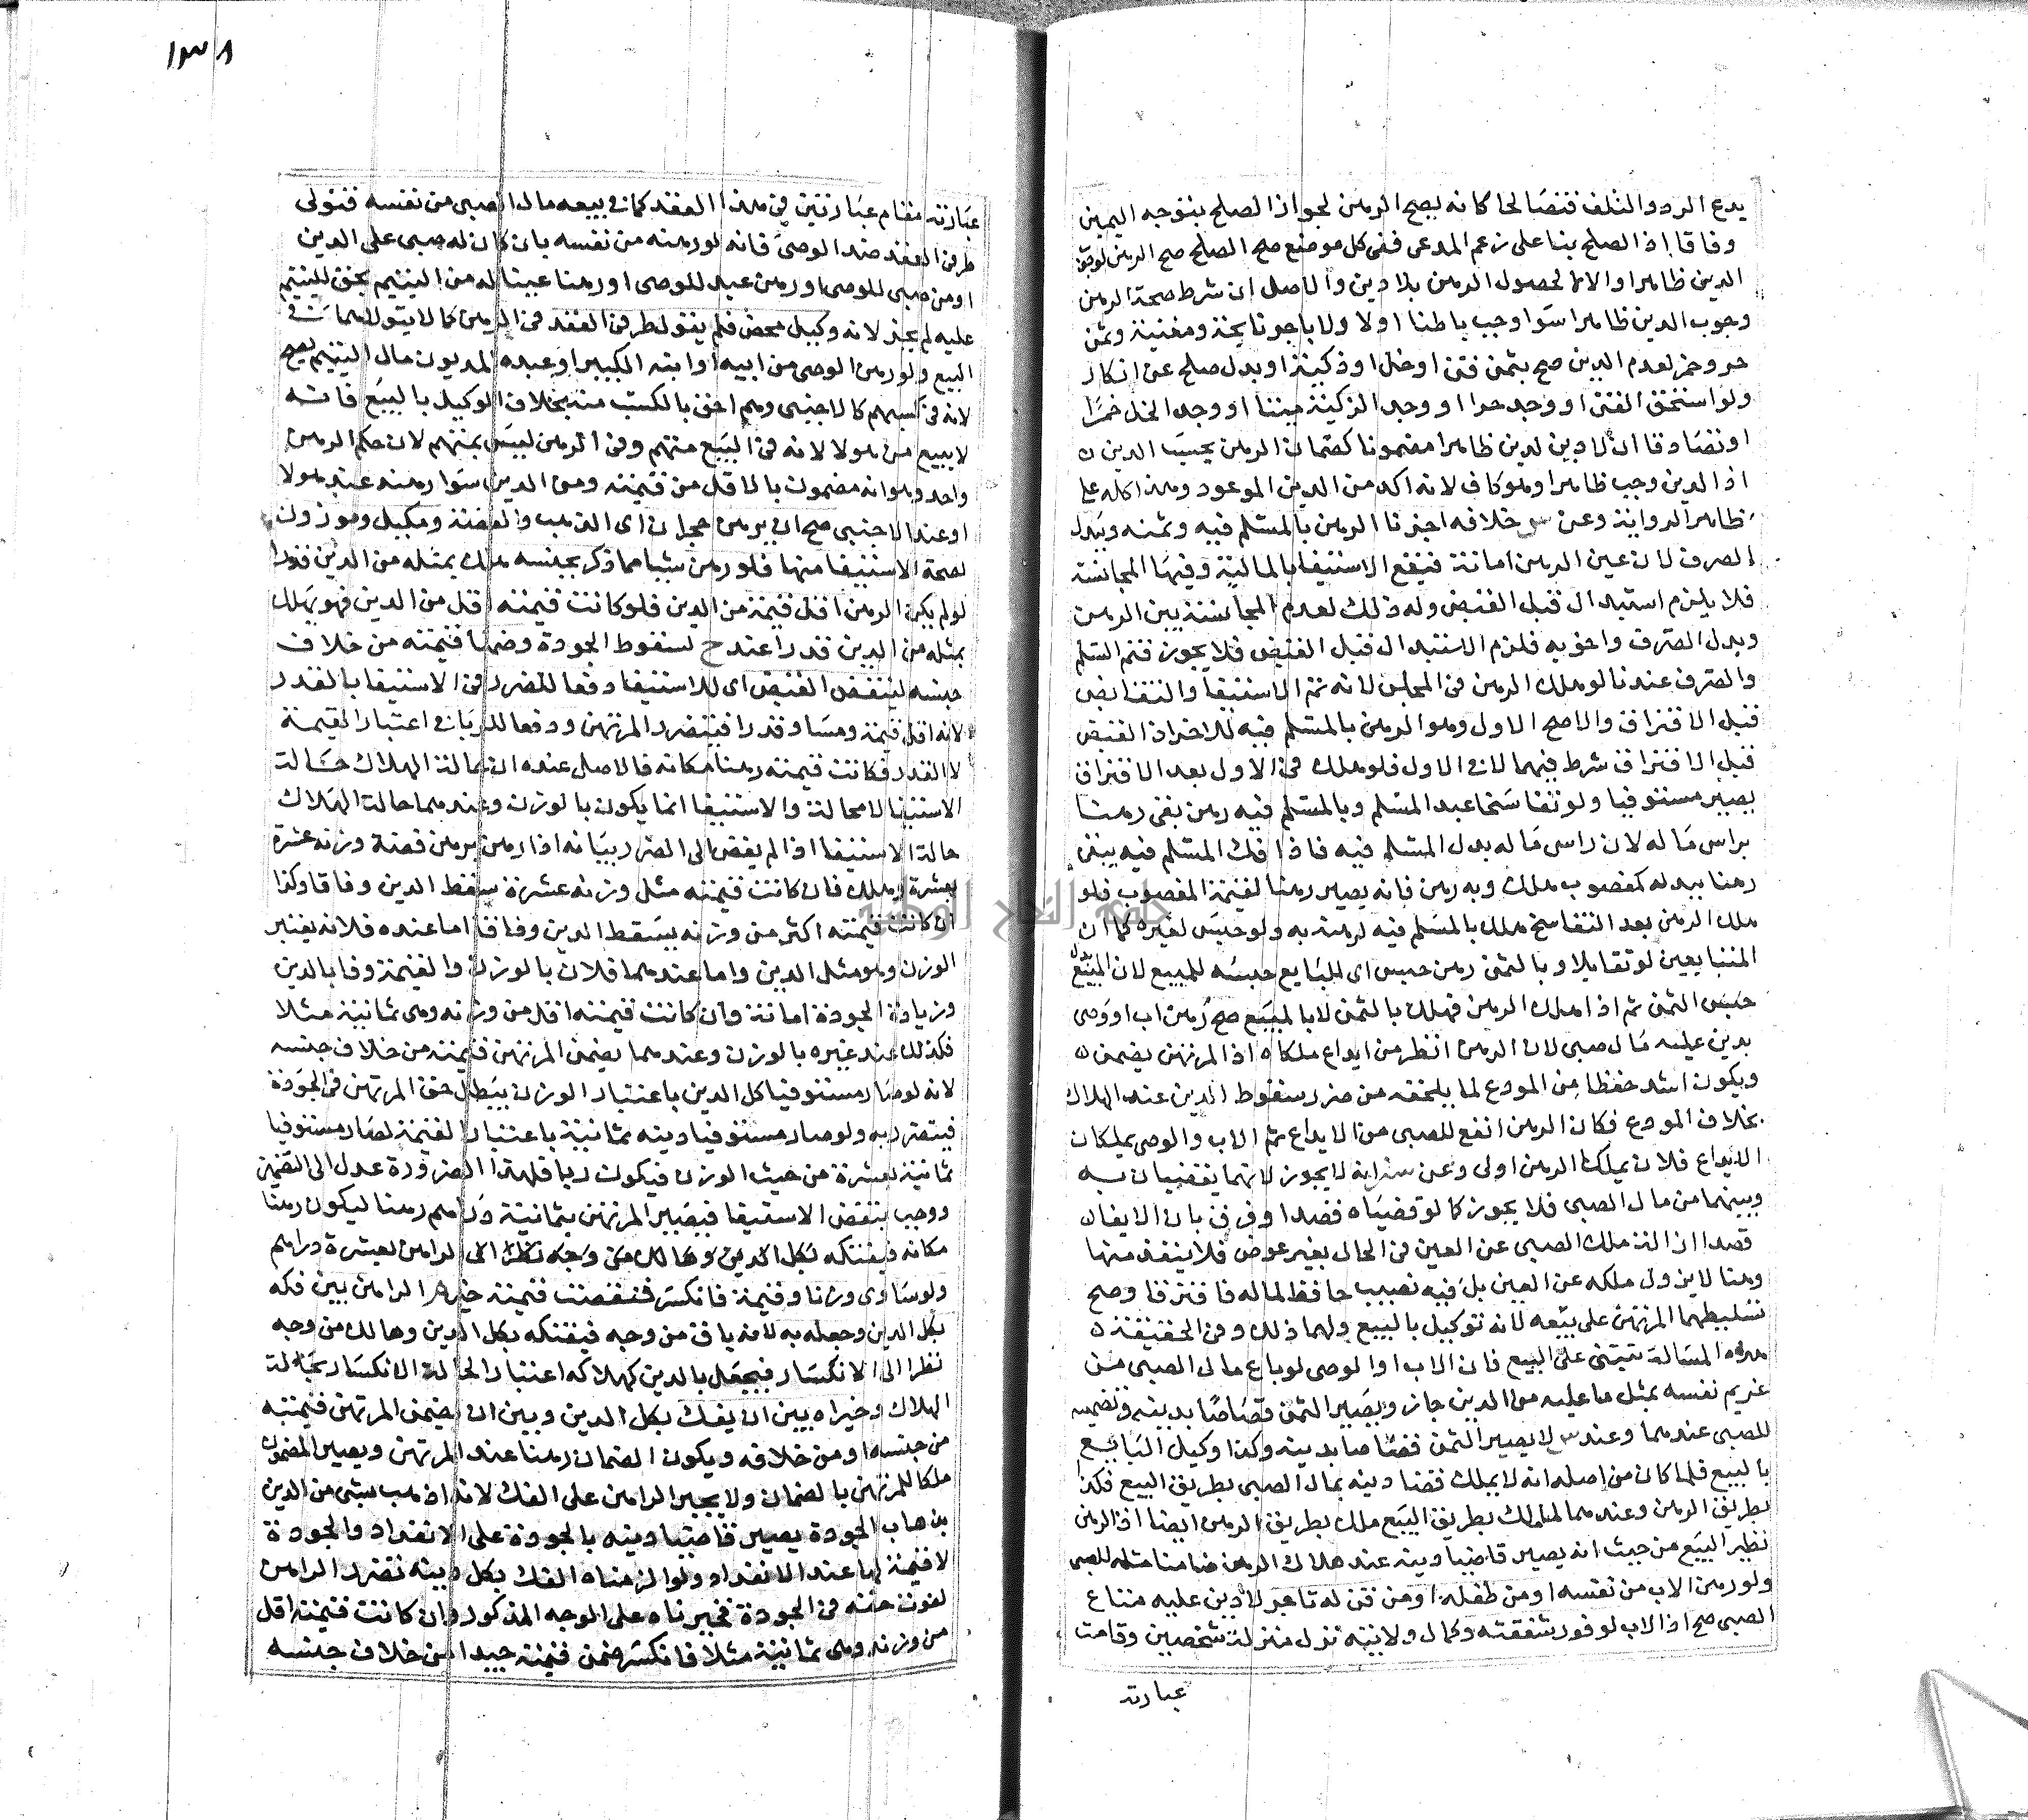 يدع الرد والتلف فتصالحا كانه يصح الرهن لجواز الصلح بتوجه اليمين
وفاقا اذ الصلح بنا على زعم المدعى ففى كل موضع صح الصلح صح الرهن لوجوب
الدين ظاهرا والا لا لحصول الرهن بلا دين والاصل ان شرط صحة الرهن
وجوب الدين ظاهرا سوا وجب باطنا اولا ولا باجر نايحة ومغنية وثمن
حر وخمر لعدم الدين صح بثمن قن او خل او ذكية او بدل صلح عن انكار
ولو استحق القن او وجد حرا او وجد الذكية ميتا او وجد الخل خمرا
او تصادقا ان لا دين لدين ظاهرا مضمونا كضمان الرهن بحسب الدين
اذ الدين وجب ظاهرا وهو كاف لانه اكد من الدين الموعود وهذا كله على
ظاهر الرواية وعن س خلافه اجزنا الرهن بالمسلم فيه وثمنه وبدل
الصرف لان عين الرهن امانة فيقع الاستيفا بالمالية وفيها المجانسة
فلا يلزم استبدال قبل القبض وله ذلك لعدم المجانسة بين الرهن
وبدل الصرف واخويه فلزم الاستبدال قبل القبض فلا يجوز فتم السلم
والصرف عندنا لو هلك الرهن فى المجلس لانه تم الاستيفا والتقابض
قبل الافتراق والاصح الاول وهو الرهن بالمسلم فيه للاخر اذ القبض
قبل الافتراق شرط فيهما لا فى الاول فلو هلك فى الاول بعد الافتراق
يصير مستوفيا ولو تفاسخا عبد المسلم وبالمسلم فيه رهن بقى رهنا
براس ماله لان راس ماله بدل المسلم فيه فاذا فك المسلم فيه يبقى
رهنا ببدله كمغصوب هلك وبه رهن فانه يصير رهنا لقيمة المغصوب فلو
هلك الرهن بعد التفاسخ هلك بالمسلم فيه لرهنه به ولو حبس لغيره كما ان
المتبايعين لو تقايلا وبالثمن رهن حبس اى للبايع حبسه للمبيع لان المبيع
حبس الثمن ثم اذا هلك الرهن فهلك بالثمن لا بالمبيع صح رهن اب او وصى
بدين عليه مال صبى لان الرهن انظر من ايداع ملكاه اذ المرتهن يضمن
ويكون اشد حفظا من المودع لما يلحقه من ضرر سقوط الدين عند الهلاك
بخلاف المودع فكان الرهن انفع للصبى من الايداع ثم الاب والوصى يملكان
الايداع فلان يملك الرهن اولى وعن س انه لا يجوز لانهما يقضيان به
دينهما من مال الصبى فلا يجوز كما لو قضياه قصدا وفرق بان الايفاء
قصدا ازالة ملك الصبى عن العين فى الحال بغير عوض فلا ينفذ منها
وهنا لا يزول ملكه عن العين بل فيه نصيب حافظ لماله فافترقا وصح
تسليطهما المرتهن على بيعه لانه توكيل بالبيع ولهما ذلك وفى الحقيقة
هذه المسالة تبتنى على البيع فان الاب او الوصى لو باع مال الصبى من
غريم نفسه بمثل ما عليه من الدين جاز ويصير الثمن قصاصا بدينه وتضمه
للصبى عندهما وعند س لا يصير الثمن قصاصا بدينه وكذا وكيل البايع
بالبيع فلما كان من اصله انه لا يملك قضا دينه بمال الصبى بطريق البيع فكذا
بطريق الرهن وعندهما لما ملك بطريق البيع ملك بطريق الرهن ايضا اذ الرهن
نظير البيع من حيث انه يصير قاضيا دينه عند هلاك الرهن ضامنا مثله للصبى
ولو رهن الاب من نفسه او من طفله او من قن له تاجر لا دين عليه متاع
الصبى صح اذ الاب لوفور شفقته وكمال ولايته نزل منزلة شخصين وقامت
عبارته
١٣٨
عبارته مقام عبارتين فى هذا العقد كما فى بيعه مال الصبى من نفسه فتولى
طرفى العقد ضد الوصى فانه لو رهنه من نفسه بان كان له صبى على الدين
او من صبى للوصى او رهن عبد للوصى او رهنا عينا له من اليتيم بحق لليتيم
عليه لم يجز لانه وكيل محض فلم يتول طرفى العقد فى الرهن كما لا يتولاهما فى
البيع ولو رهن الوصى من ابيه او ابنه الكبير او عبده المديون مال اليتيم يصح
لانه فى كسبهم كالاجنبى وهم احق بالكسب منه بخلاف الوكيل بالبيع فانه
لا يبيع من هولا لانه فى البيع متهم وفى الرهن ليس بمتهم لان حكم الرهن
واحد وهو انه مضمون بالاقل من قيمته ومن الدين سوا رهنه عند هولا
او عند الاجنبى صح ان يرهن حجران اى الذهب والفضة ومكيل وموزون
لصحة الاستيفا منها فلو رهن شيا مما ذكر بجنسه هلك بمثله من الدين قدرا
لو لم يكن الرهن اقل قيمة من الدين فلو كانت قيمته اقل من الدين فهو يهلك
بمثله من الدين قدرا عند ح لسقوط الجودة وضمنا قيمته من خلاف
جنسه لينقض القبض اى للاستيفا دفعا للضرر فى الاستيفا بالقدر
لانه اقل قيمة ومساو قدرا فيتضرر المرتهن ودفعا للربا فى اعتبار القيمة
لا القدر فكانت قيمته رهنا مكانه فالاصل عنده ان حالة الهلاك حالة
الاستيفا لا محالة والاستيفا انما يكون بالوزن وعندهما حالة الهلاك
حالة الاستيفا اذا لم يفض الى الضرر بيانه اذا رهن برهن فضة وزنه عشرة
بعشرة وهلك فان كانت قيمته مثل وزنه عشرة سقط الدين وفاقا وكذا
ان كانت قيمته اكثر من وزنه يسقط الدين وفاقا اما عنده فلانه يعتبر
الوزن وهو مثل الدين واما عندهما فلان بالوزن والقيمة وفا بالدين
وزيادة الجودة امانة وان كانت قيمته اقل من وزنه وهى ثمانية مثلا
فكذلك عند غيره بالوزن وعندهما يضمن المرتهن قيمته من خلاف جنسه
لانه لو صار مستوفيا كل الدين باعتبار الوزن يبطل حق المرتهن فى الجودة
فيتضرر به ولو صار مستوفيا دينه ثمانية باعتبار القيمة لصار مستوفيا
ثمانية بعشرة من حيث الوزن فيكون ربا فلهذا الضرورة عدل الى التضمين
ووجب بنقض الاستيفا فيصير المرتهن بثمانية دراهم رهنا ليكون رهنا
مكانه فيفتكه بكل الدين وهالك من وجه نظرا الى الراهن لعشرة دراهم
ولو ساوى وزنا وقيمة فانكسر فنقصت قيمته خير الراهن بين فكه
بكل الدين وجعله به لانه باق من وجه فيفتكه بكل الدين وهالك من وجه
نظرا الى الانكسار فيجعل بالدين كهلاكه اعتبارا لحالة الانكسار بحالة
الهلاك وخيراه بين ان يفك بكل الدين وبين ان يضمن المرتهن قيمته
من جنسه او من خلافه ويكون الضمان رهنا عند المرتهن ويصير المضمون
ملكا للمرتهن بالضمان ولا يجبر الراهن على الفك لانه اذ هب شى من الدين
بذهاب الجودة يصير قاضيا دينه بالجودة على الانفراد والجودة
لا قيمة لها عند الانفراد ولو الزمناه الفك بكل دينه تضرر الراهن
لفوت حقه فى الجودة فخيرناه على الوجه المذكور وان كانت قيمته اقل
من وزنه وهى ثمانية مثلا فانكسر ضمن قيمته جيدا من خلاف جنسه